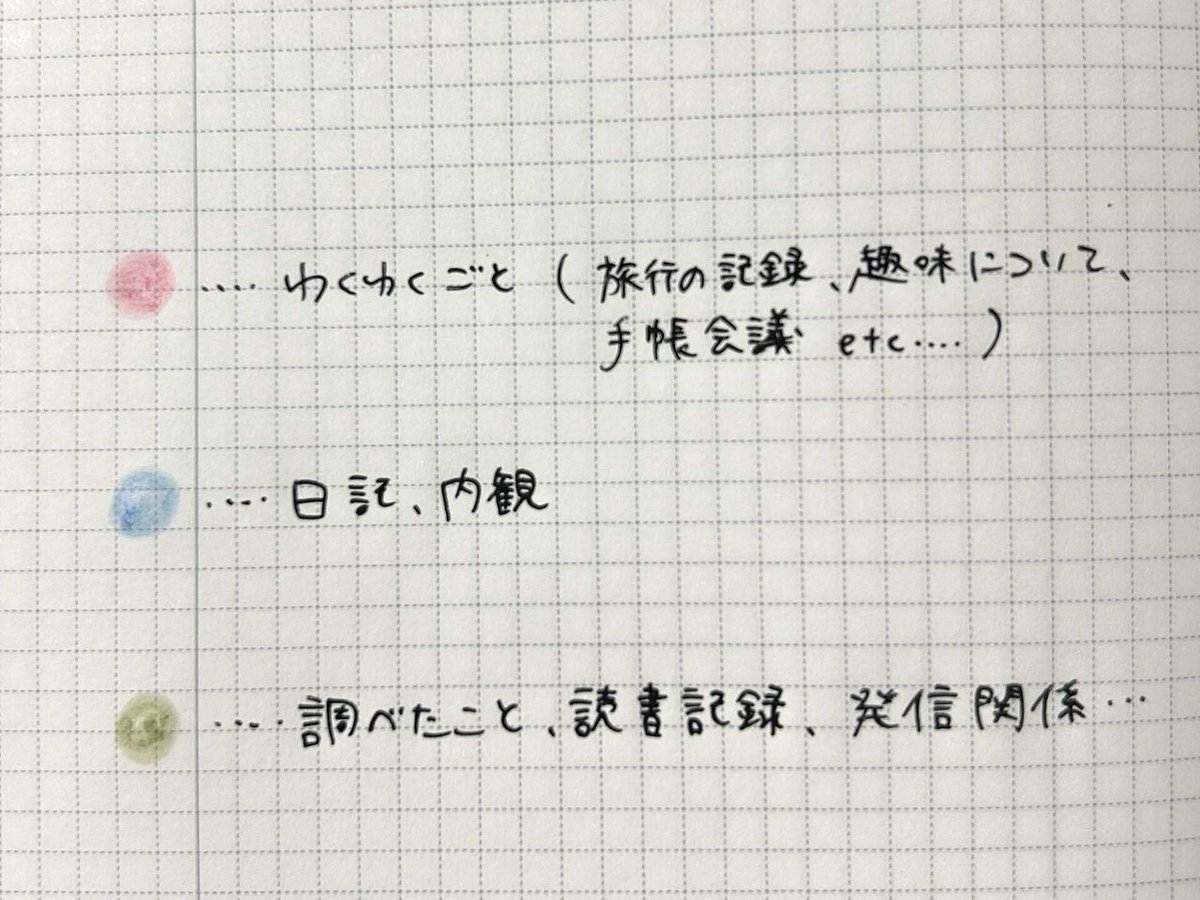 ‥‥ わくわくごと ( 旅行の記録、趣味について、
手帳会議 etc‥‥ )
‥‥ 日記、内観
‥‥ 調べたこと、読書記録、発信関係…